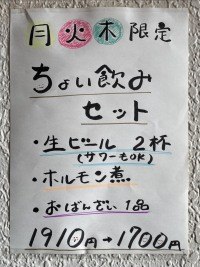 月火木限定
ちょい飲み
セット
・生ビール 2杯
(サワーもOK)
・ホルモン煮
・おばんざい1品
1910円→1700円